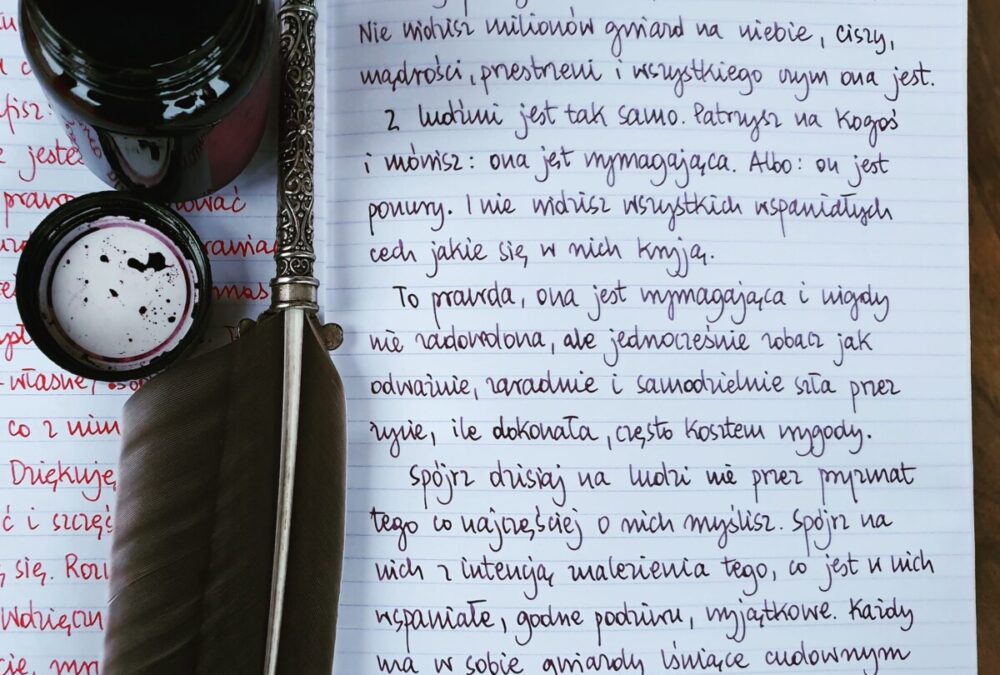 Nie widzisz milionów gwiazd na niebie, ciszy,
mądrości, przestrzeni i wszystkiego czym ona jest.
Z ludźmi jest tak samo. Patrzysz na kogoś
i mówisz: ona jest wymagająca. Albo: on jest
ponury. I nie widzisz wszystkich wspaniałych
cech jakie się w nich kryją.
To prawda, ona jest wymagająca i nigdy
nie zadowolona, ale jednocześnie zobacz jak
odważnie, zaradnie i samodzielnie szła przez
życie, ile dokonała, często kosztem wygody.
Spójrz dzisiaj na ludzi nie przez pryzmat
tego co najczęściej o nich myślisz. Spójrz na
nich z intencją znalezienia tego, co jest w nich
wspaniałe, godne podziwu, wyjątkowe. Każdy
ma w sobie gwiazdy lśniące cudownym
co z nim
Dziękuję
ć i szczęś
się. Rozu
Wdzięczn